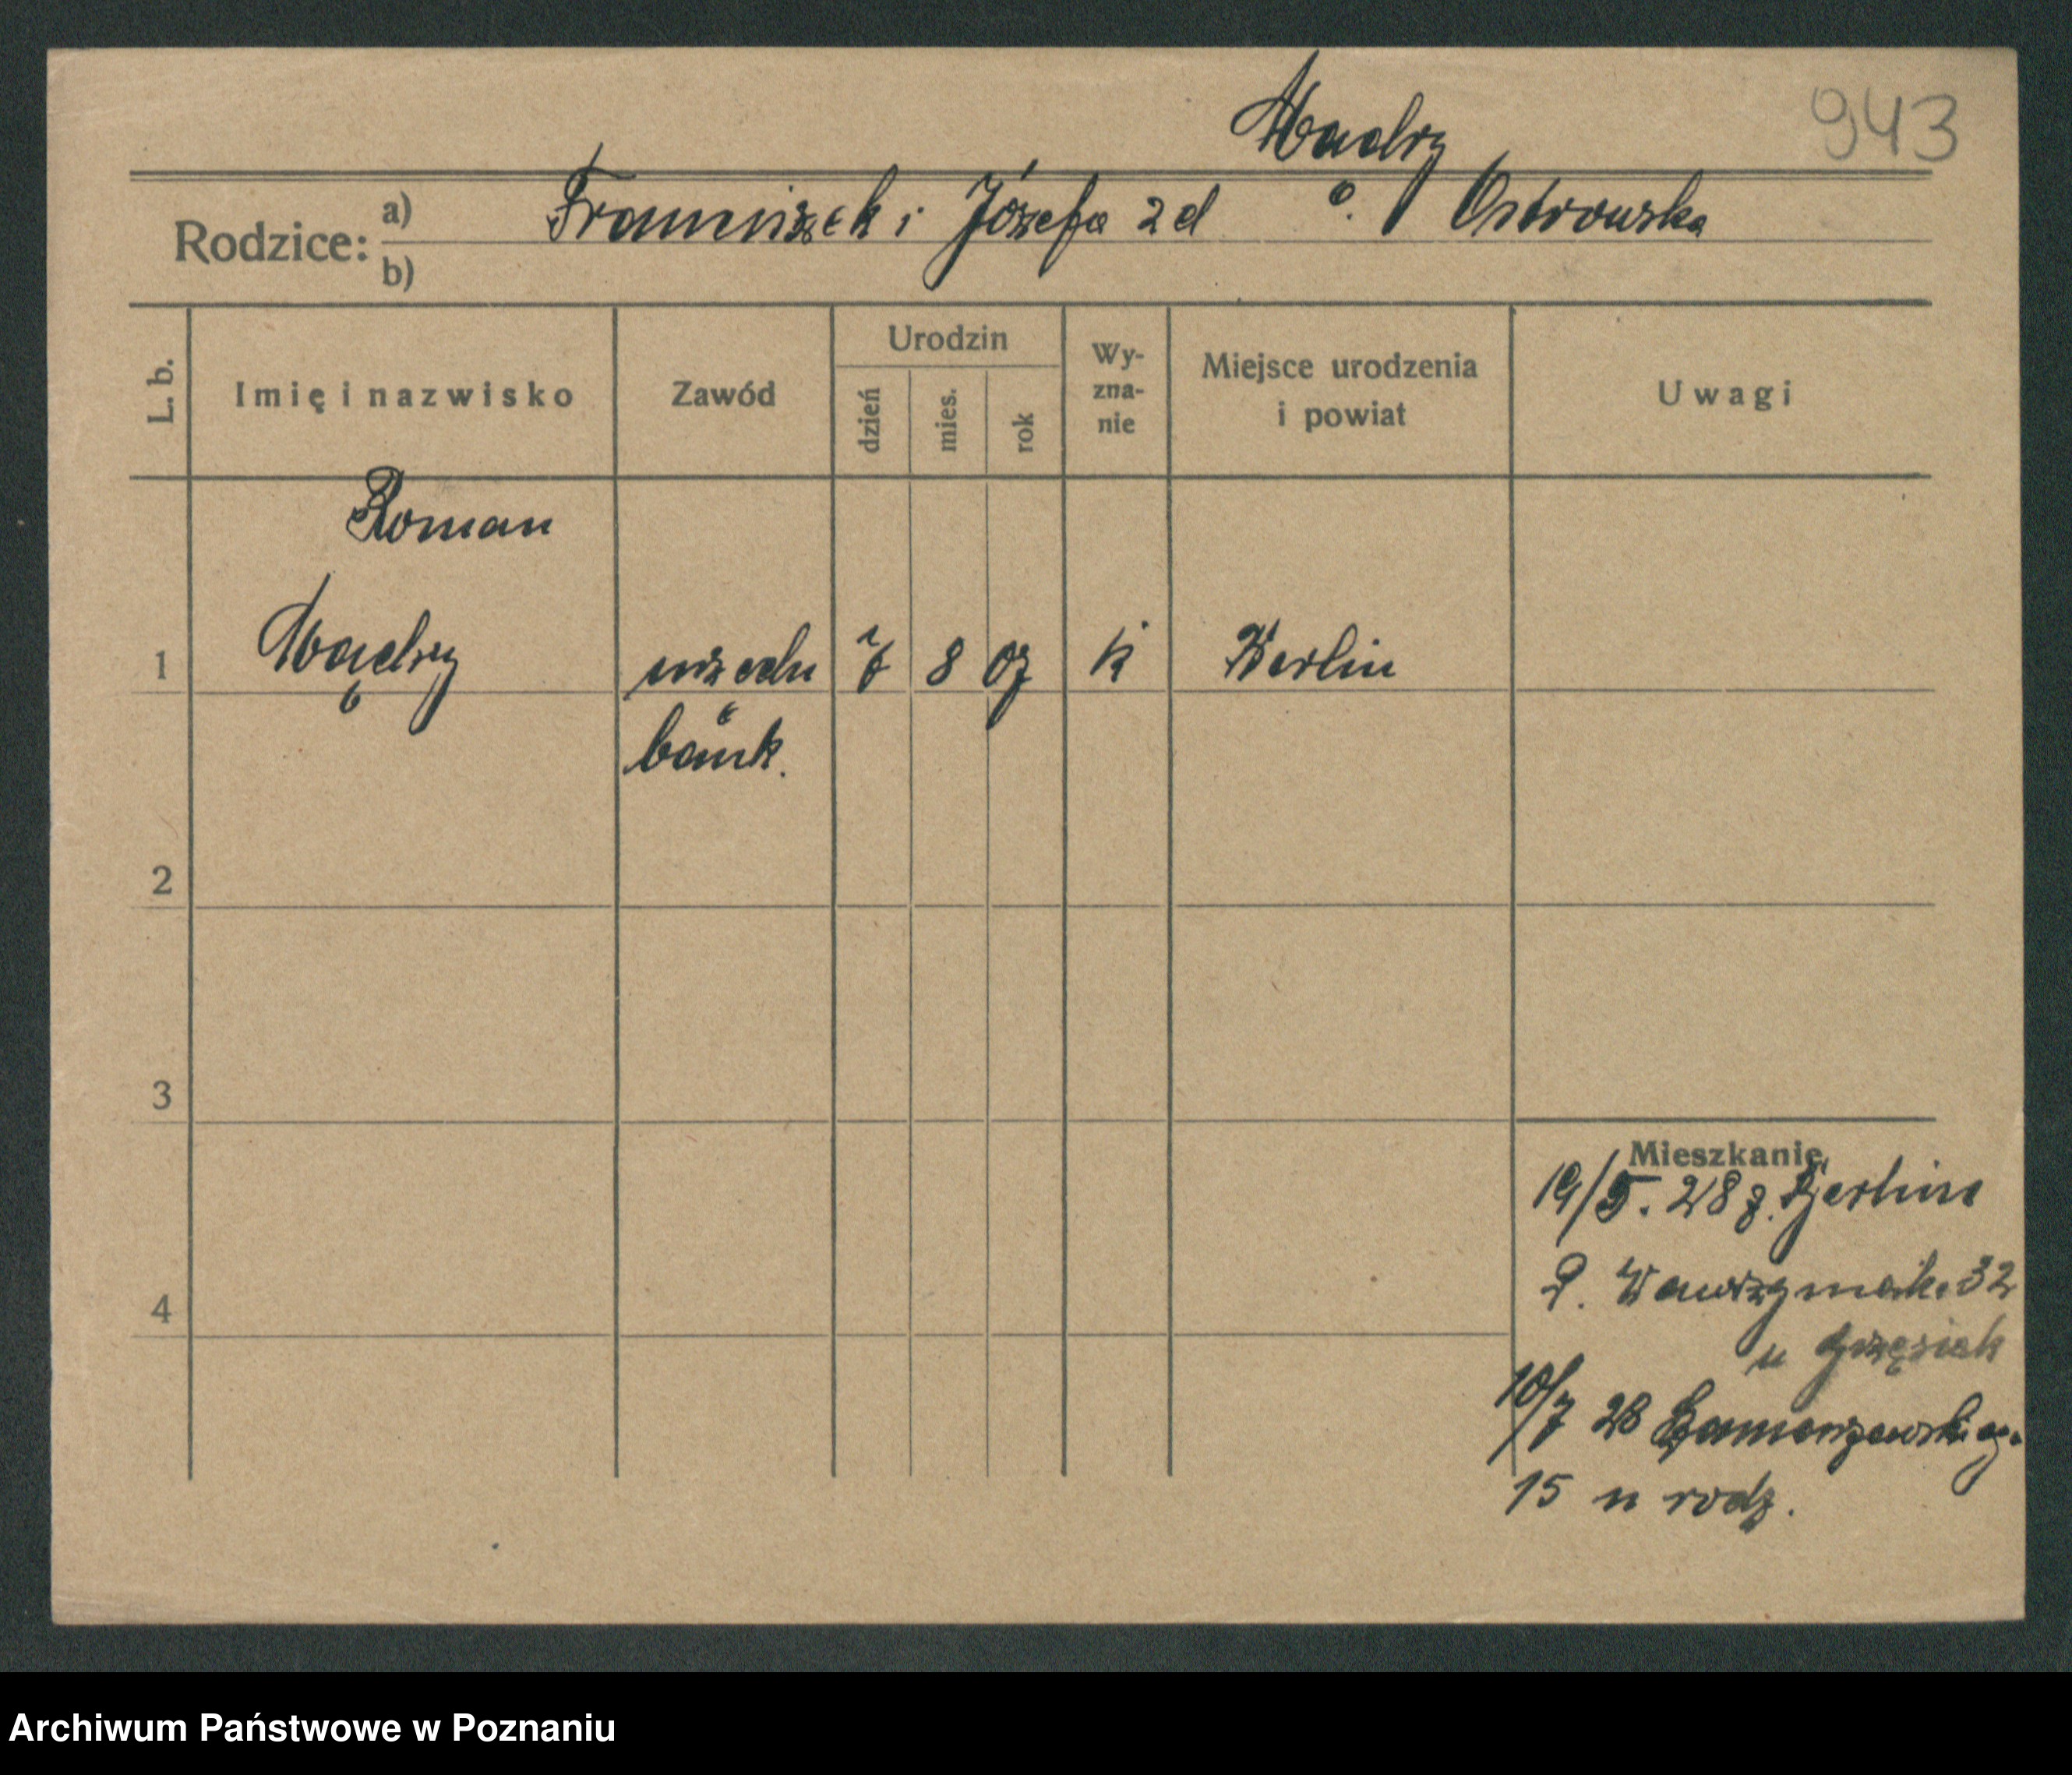 943
Mądry
Rodzice: a) Franciszek i Józefa zd Ostrowska
b)
L. b.
Imię i nazwisko
Zawód
Urodzin
dzień
mies.
rok
Wy-
zna-
nie
Miejsce urodzenia
i powiat
Uwagi
Roman
1 Mądry urzędn 8 07 k Berlin
bank.
2
3
4
Mieszkanie
19/5. 28 z. Berlina
P. Wawrzyniaka 32
u Grzesiak
10/7 28
15 u rodz.
Archiwum Państwowe w Poznaniu